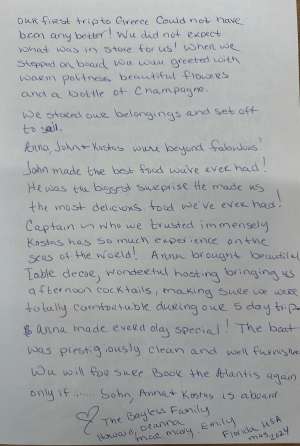 our first trip to Greece Could not have
been any better! Wu did not expect
what was in store for us! When we
stepped on board wu wuu greeted with
warm politness beautiful flowers
and a bottle of Champagne.
We stored our belongings and set off
to sail.
Anna, John + Kostas wure beyond fabulous!
John made the best food we've ever had!
He was the biggest surprise He made us
the most delicious food we've ever had!
Captain in who we trusted immensely
Kostas has so much experience on the
seas of the world! Anna brought beautiful
Table decor, wonderful hosting bringing us
afternoon cocktails, making sure we were
totally comfortable during our 5 day trip
Anna made every day special! The boat
was prestigiously clean and well furnished
Wu will for sure Book the Atlantis again
only if ...... John, Anna + Kostas is aboard
The Bayless Family
Howard, Deanna, Emily
Florida USA
2024